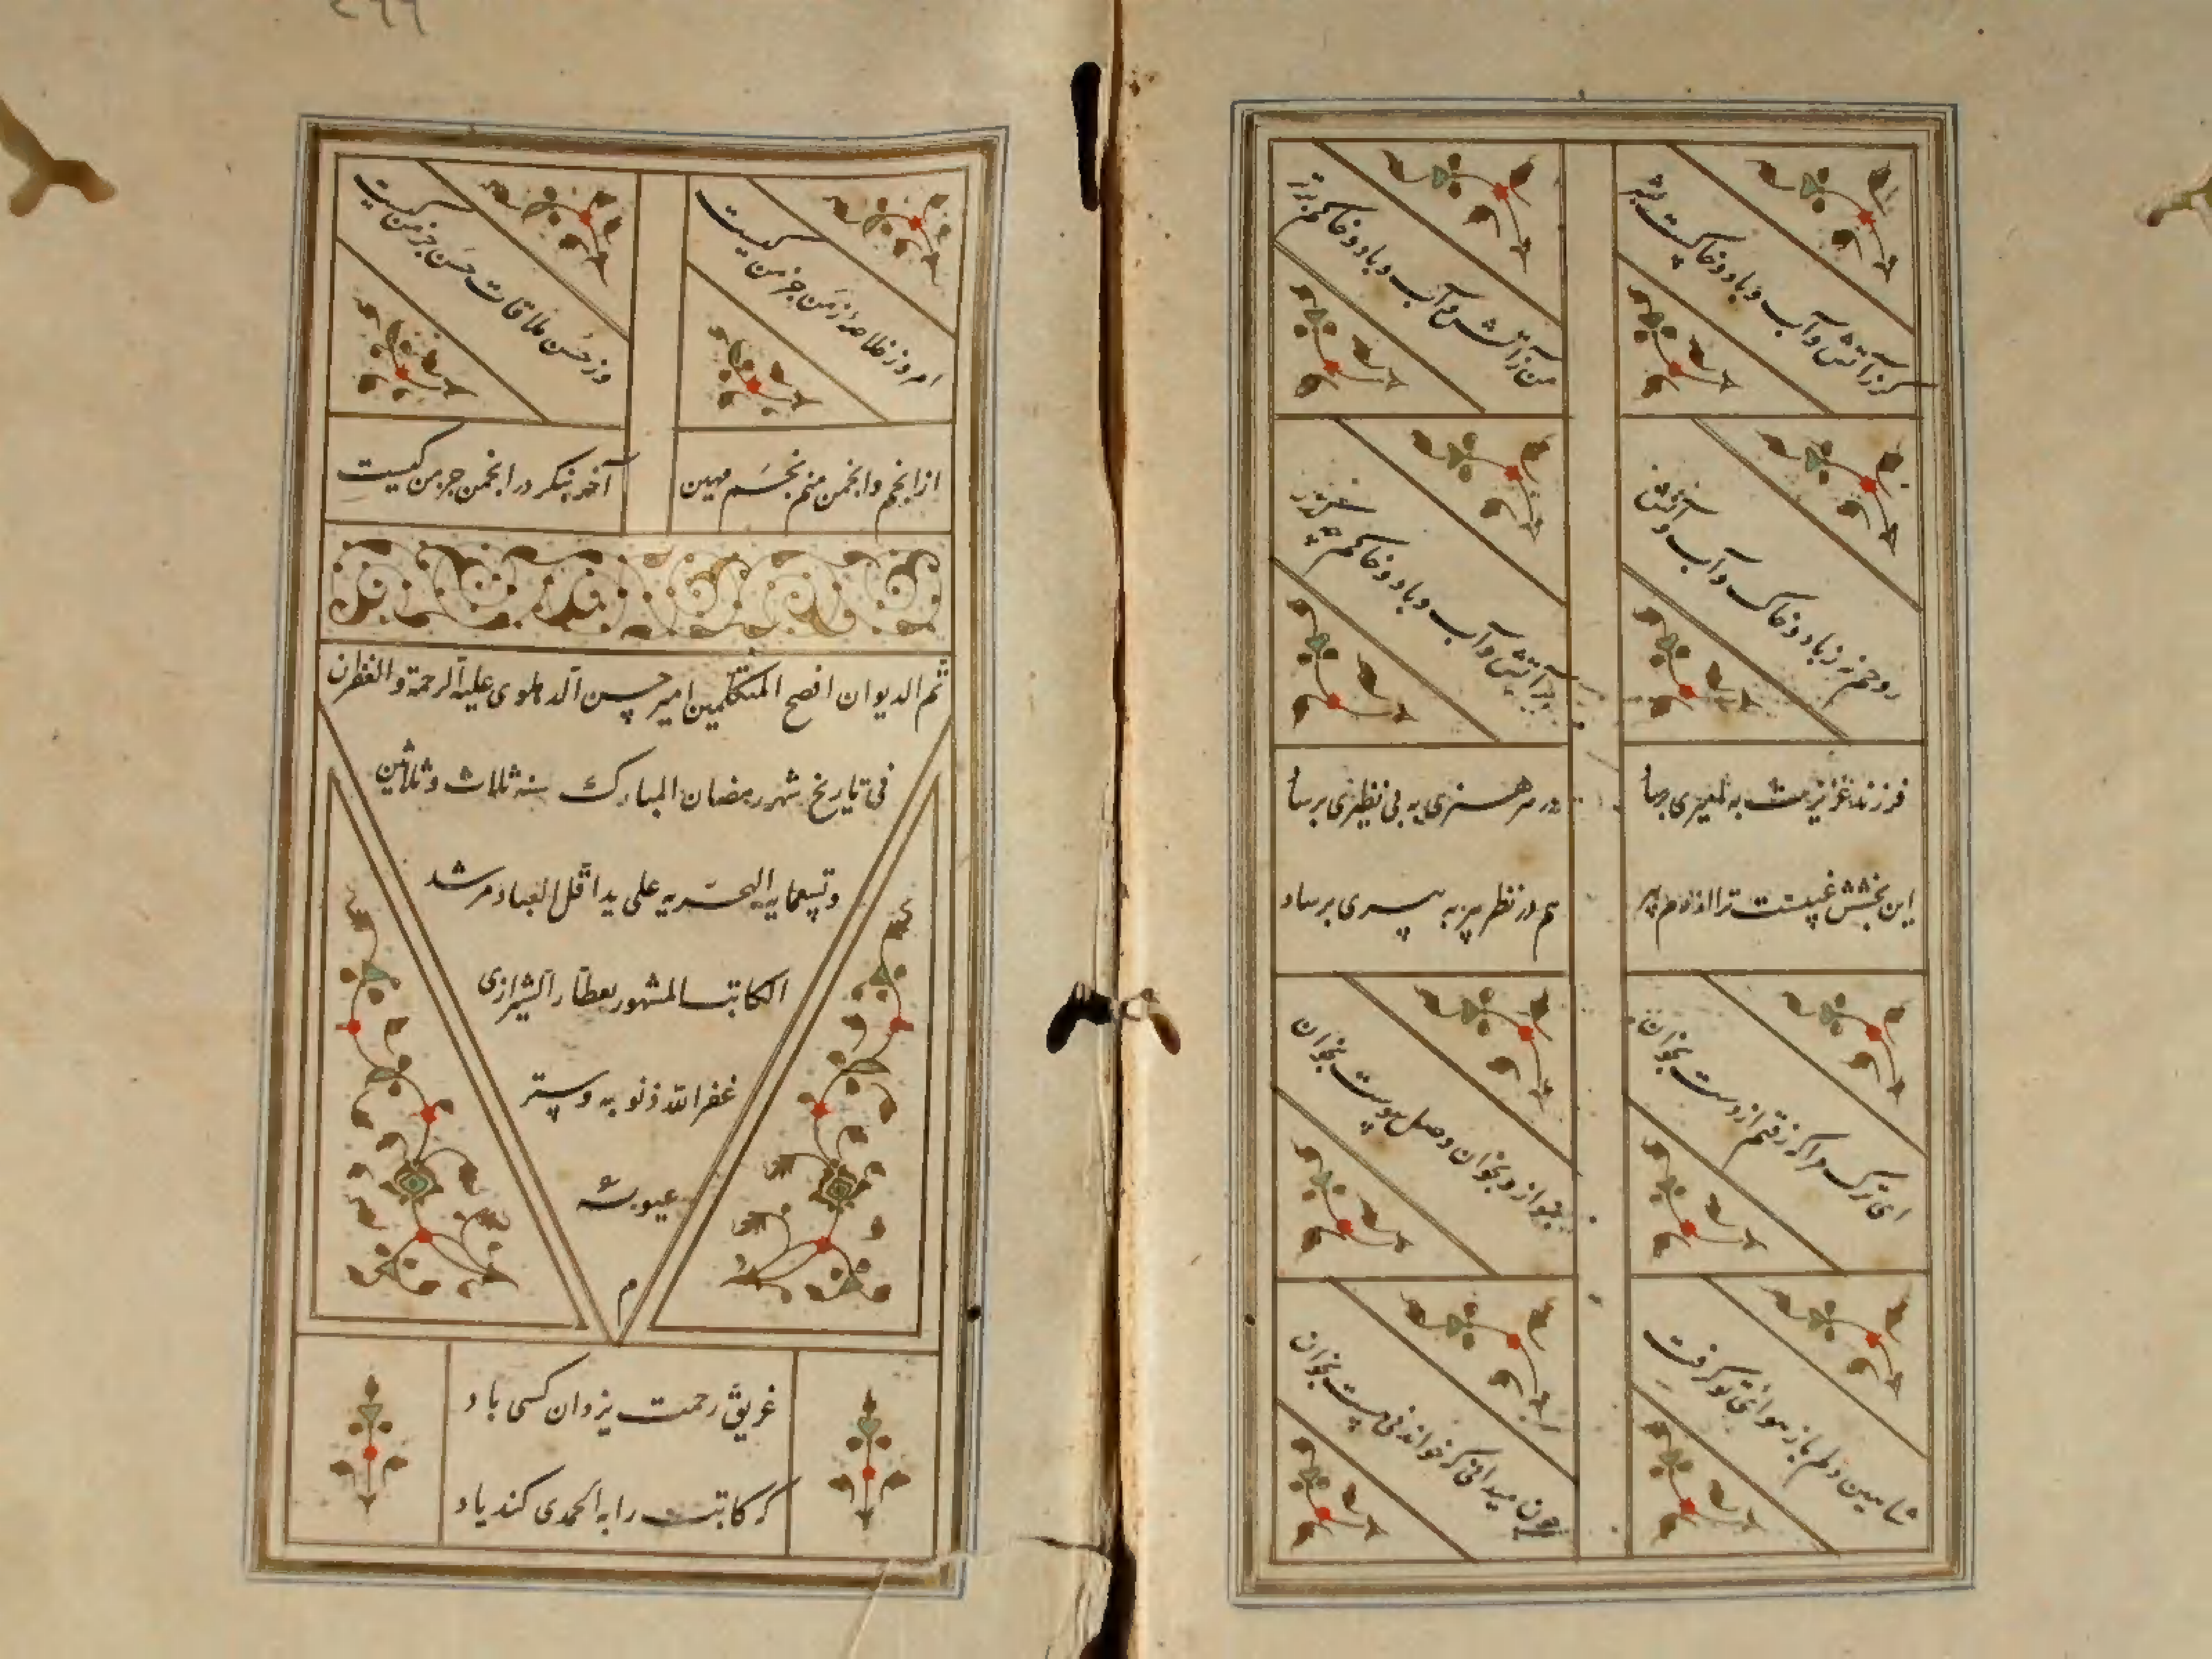 کز آتش و آب و باد و خاکست بشر
من ز آتش و آب و باد و خاکم بتر
روحم نه ز باد و خاک و آب و آتش
بر آتش و آب و باد و خاکم چه گذر
فرزند عزیزت به رسا
در هر هنری به بی نظیری برسا
این بخشش غیبست ترا پیر
هم در نظر پیر به پیری برساد
ای ترک مرا که رفتم از دست بخوان
بنواز و بخوان وصل پیوست بخوان
شاهین دلم باز هوای تو گرفت
چون میدانی که خواندنی هست بخوان
امروز خلاصه زمن جز من کیست
وز حُسن ملاقات حَسَن جز من کیست
از انجم و انجمن منم نجم مهین
آخر بنگر در انجمن جز من کیست
تم الدیوان افصح المتکلمین امیر حسن الدهلوی علیه الرحمة و الغفران
فی تاریخ شهر رمضان المبارک سنه ثلاث و ثلاثین
و تسعمایه الهجریه علی ید اقل العباد مرشد
الکاتب المشهور بعطار الشیرازی
غفر الله ذنوبه و ستر
عیوبه
م
غریق رحمت یزدان کسی باد
که کاتب را به الحمدی کند یاد